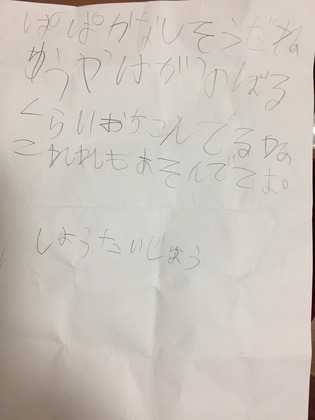 ぱぱかなしそうだね
ゆうやはがつのばる
くらいおちこんでるかな
もあそんでてよ。
しょうたいじょう